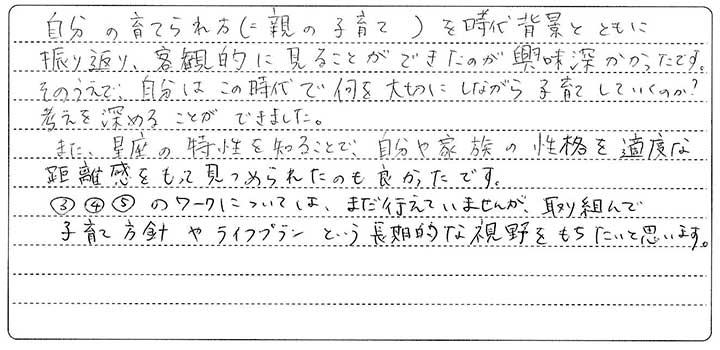 自分の育てられ方(=親の子育て)を時代背景とともに
振り返り、客観的に見ることができたのが興味深かったです。
そのうえで、自分はこの時代で何を大切にしながら子育てしていくのか?
考えを深めることができました。
また、星座の特性を知ることで、自分や家族の性格を適度な
距離感をもって見つめられたのも良かったです。
③④⑤のワークについては、まだ行えていませんが、取り組んで
子育て方針やライフプランという長期的な視野をもちたいと思います。